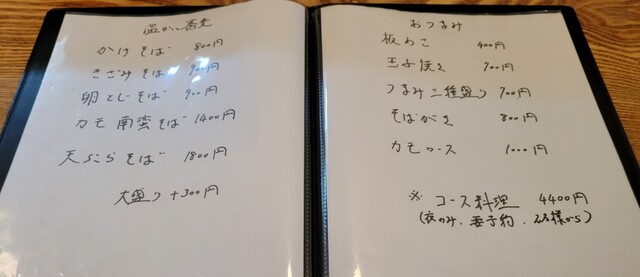 温かい蕎麦
かけそば 800円
きざみそば 900円
卵とじそば 900円
カモ南蛮そば 1400円
天ぷらそば 1800円
大盛り +300円
おつまみ
板わさ 400円
玉子焼き 700円
つまみ二種盛り 700円
そばがき 800円
カモロース 1000円
※ コース料理 4400円
(夜のみ・要予約・2名様から)